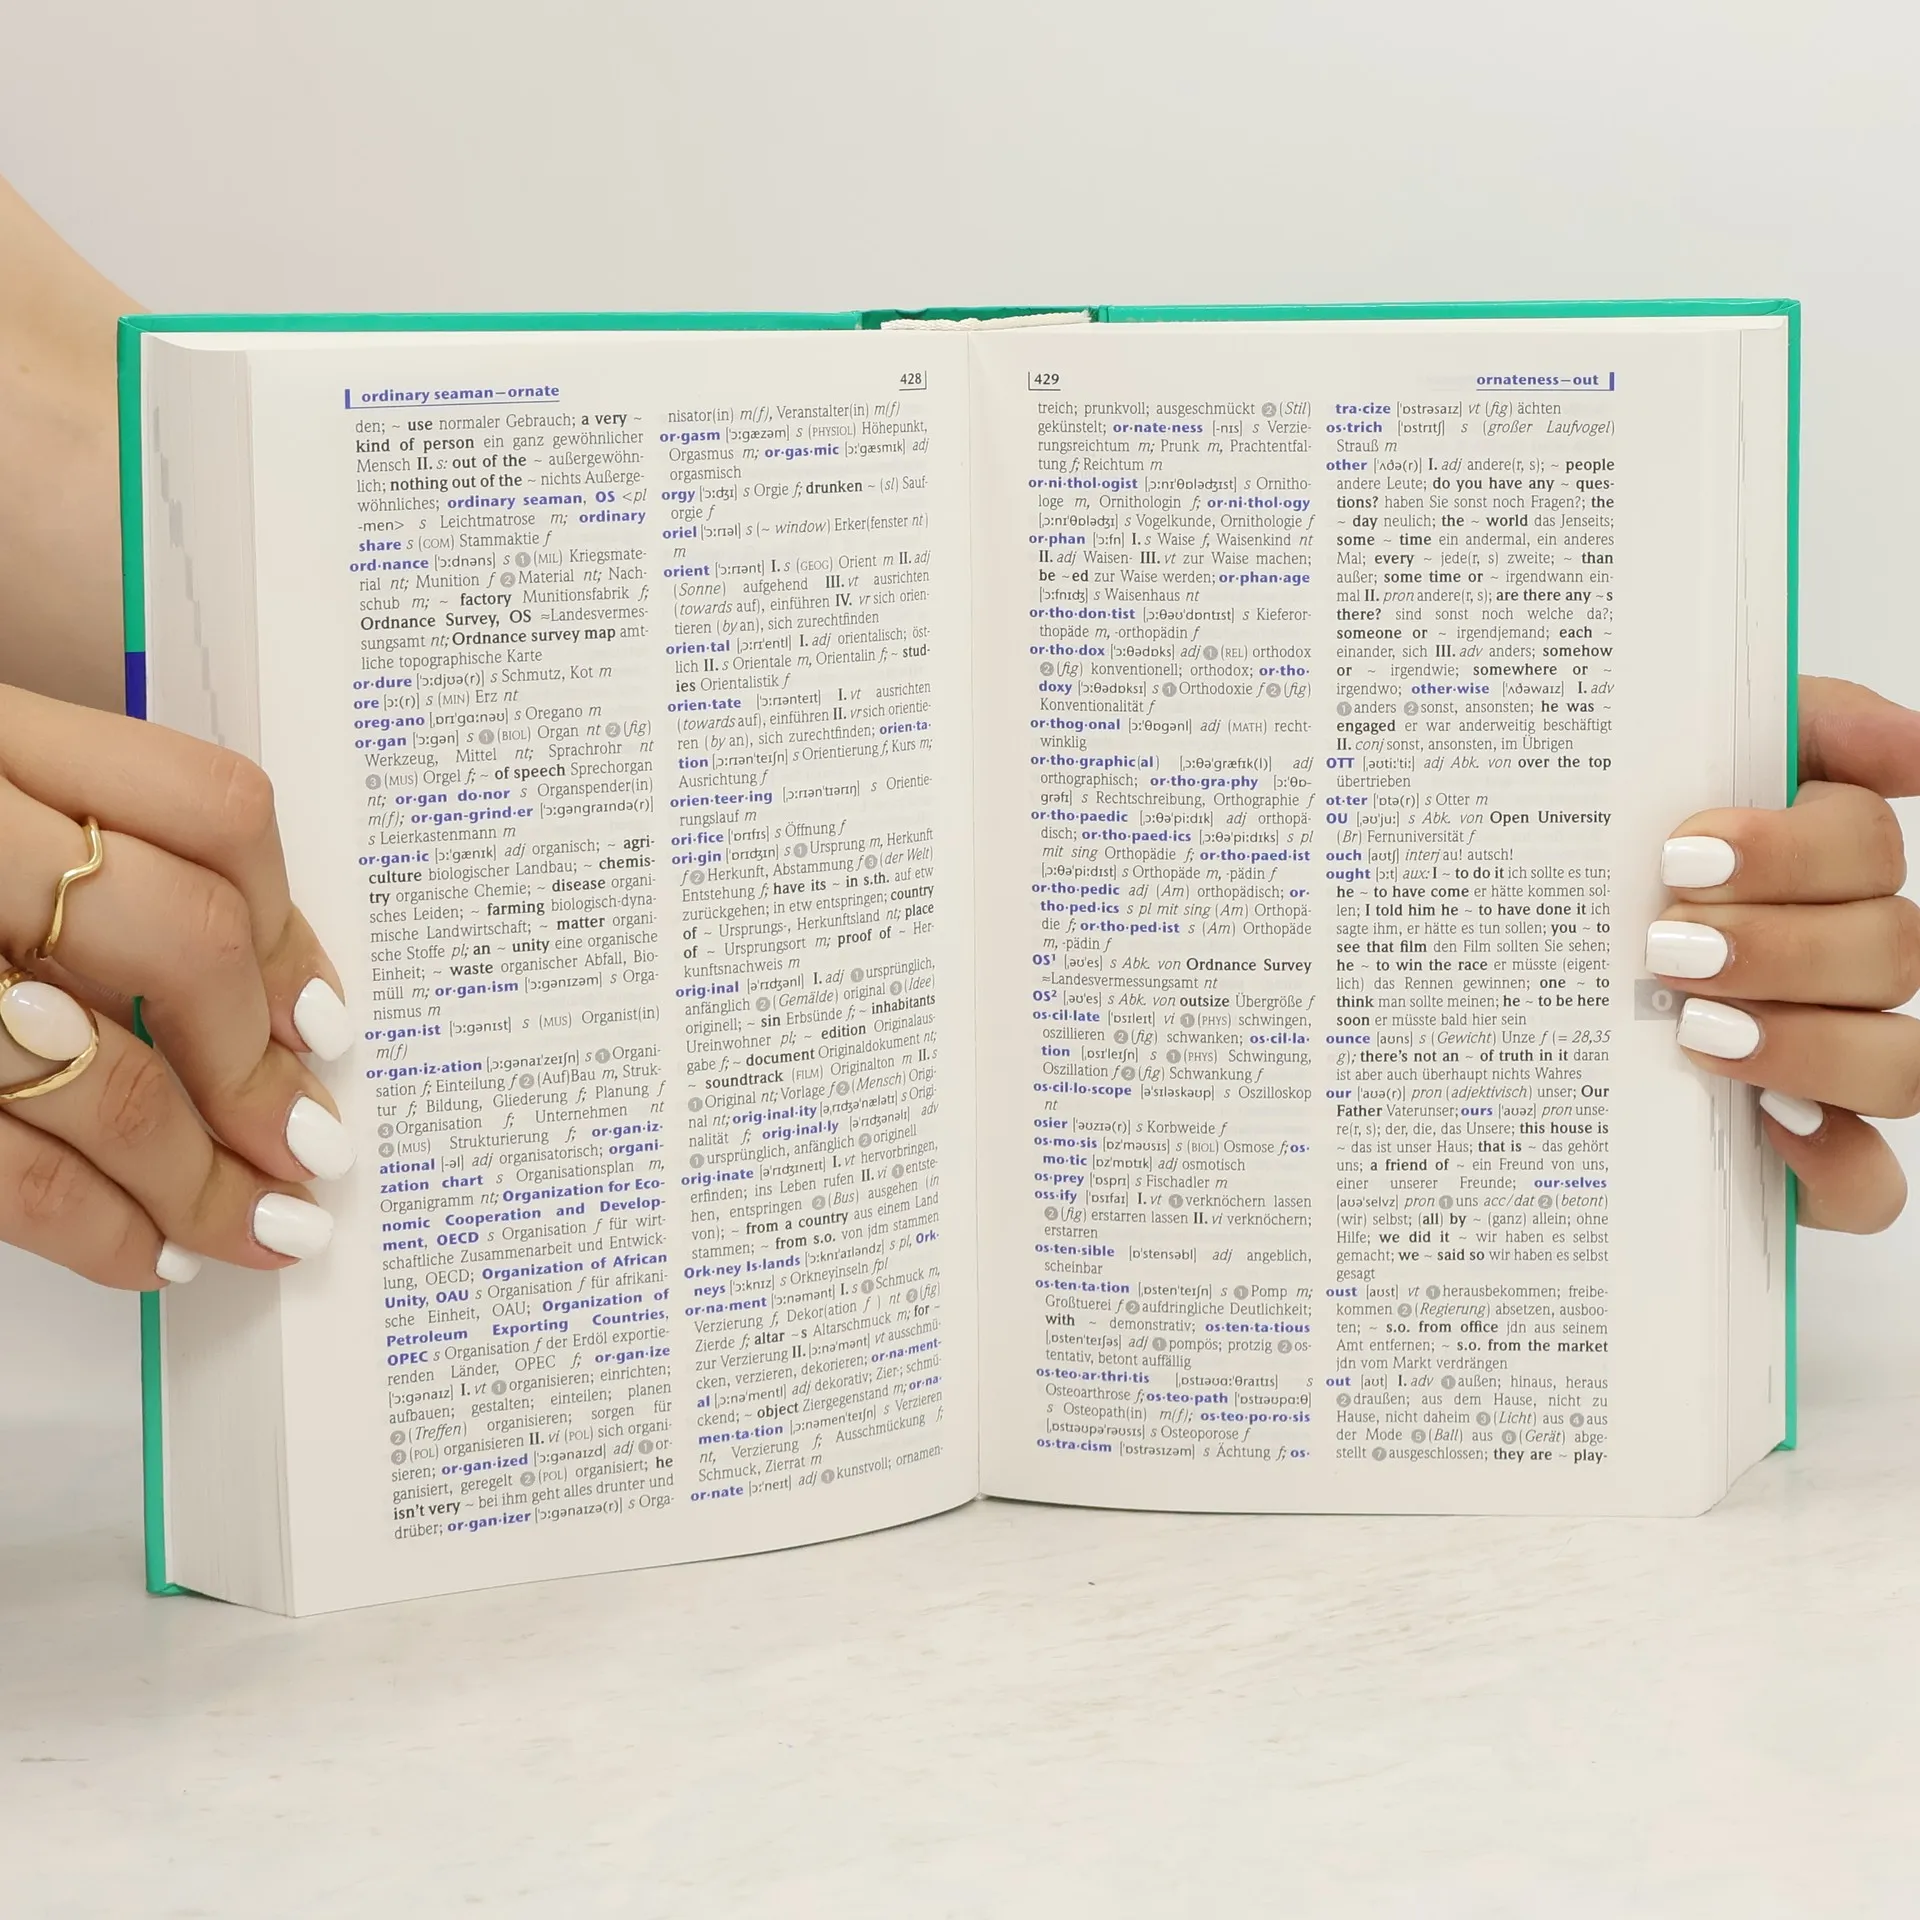 ordinary seaman—ornate
428
den; ~ use normaler Gebrauch; a very ~
kind of person ein ganz gewöhnlicher
Mensch II. s: out of the ~ außergewöhn-
lich; nothing out of the ~ nichts Außerge-
wöhnliches; ordinary seaman, OS <pl
-men> s Leichtmatrose m; ordinary
share s (COM) Stammaktie f
ord·nance ['ɔ:dnəns] s ❶ (MIL) Kriegsmate-
rial nt; Munition f ❷ Material nt; Nach-
schub m; ~ factory Munitionsfabrik f;
Ordnance Survey, OS ≈Landesvermes-
sungsamt nt; Ordnance survey map amt-
liche topographische Karte
or·dure ['ɔ:djʊə(r)] s Schmutz, Kot m
ore [ɔ:(r)] s (MIN) Erz nt
oreg·ano [ˌɒrɪ'gɑ:nəʊ] s Oregano m
or·gan ['ɔ:gən] s ❶ (BIOL) Organ nt ❷ (fig)
Werkzeug, Mittel nt; Sprachrohr nt
❸ (MUS) Orgel f; ~ of speech Sprechorgan
nt; or·gan do·nor s Organspender(in)
m(f); or·gan-grind·er ['ɔ:gəngraɪndə(r)]
s Leierkastenmann m
or·gan·ic [ɔ:'gænɪk] adj organisch; ~ agri-
culture biologischer Landbau; ~ chemis-
try organische Chemie; ~ disease organi-
sches Leiden; ~ farming biologisch-dyna-
mische Landwirtschaft; ~ matter organi-
sche Stoffe pl; an ~ unity eine organische
Einheit; ~ waste organischer Abfall, Bio-
müll m; or·gan·ism ['ɔ:gənɪzəm] s Orga-
nismus m
or·gan·ist ['ɔ:gənɪst] s (MUS) Organist(in)
m(f)
or·gan·iz·ation [ˌɔ:gənaɪ'zeɪʃn] s ❶ Organi-
sation f; Einteilung f ❷ (Auf)Bau m, Struk-
tur f; Bildung, Gliederung f; Planung f
❸ Organisation f; Unternehmen nt
❹ (MUS) Strukturierung f; or·gan·iz-
ational [-əl] adj organisatorisch; organi-
zation chart s Organisationsplan m,
Organigramm nt; Organization for Eco-
nomic Cooperation and Develop-
ment, OECD s Organisation f für wirt-
schaftliche Zusammenarbeit und Entwick-
lung, OECD; Organization of African
Unity, OAU s Organisation f für afrikani-
sche Einheit, OAU; Organization of
Petroleum Exporting Countries,
OPEC s Organisation f der Erdöl exportie-
renden Länder, OPEC f; or·gan·ize
['ɔ:gənaɪz] I. vt ❶ organisieren; einrichten;
aufbauen; gestalten; einteilen; planen
❷ (Treffen) organisieren; sorgen für
❸ (POL) organisieren II. vi (POL) sich organi-
sieren; or·gan·ized ['ɔ:gənaɪzd] adj ❶ or-
ganisiert, geregelt ❷ (POL) organisiert; he
isn't very ~ bei ihm geht alles drunter und
drüber; or·gan·izer ['ɔ:gənaɪzə(r)] s Orga-
nisator(in) m(f), Veranstalter(in) m(f)
or·gasm ['ɔ:gæzəm] s (PHYSIOL) Höhepunkt,
Orgasmus m; or·gas·mic [ɔ:'gæsmɪk] adj
orgasmisch
orgy ['ɔ:dʒɪ] s Orgie f; drunken ~ (sl) Sauf-
orgie f
oriel ['ɔ:rɪəl] s (~ window) Erker(fenster nt)
m
orient ['ɔ:rɪənt] I. s (GEOG) Orient m II. adj
(Sonne) aufgehend III. vt ausrichten
(towards auf), einführen IV. vr sich orien-
tieren (by an), sich zurechtfinden
orien·tal [ˌɔ:rɪ'entl] I. adj orientalisch; öst-
lich II. s Orientale m, Orientalin f; ~ stud-
ies Orientalistik f
orien·tate ['ɔ:rɪənteɪt] I. vt ausrichten
(towards auf), einführen II. vr sich orientie-
ren (by an), sich zurechtfinden; orien·ta-
tion [ˌɔ:rɪən'teɪʃn] s Orientierung f, Kurs m;
Ausrichtung f
orien·teer·ing [ˌɔ:rɪən'tɪərɪŋ] s Orientie-
rungslauf m
ori·fice ['ɒrɪfɪs] s Öffnung f
ori·gin ['ɒrɪdʒɪn] s ❶ Ursprung m, Herkunft
f ❷ Herkunft, Abstammung f ❸ (der Welt)
Entstehung f; have its ~ in s.th. auf etw
zurückgehen; in etw entspringen; country
of ~ Ursprungs-, Herkunftsland nt; place
of ~ Ursprungsort m; proof of ~ Her-
kunftsnachweis m
orig·inal [ə'rɪdʒənl] I. adj ❶ ursprünglich,
anfänglich ❷ (Gemälde) original ❸ (Idee)
originell; ~ sin Erbsünde f; ~ inhabitants
Ureinwohner pl; ~ edition Originalaus-
gabe f; ~ document Originaldokument nt;
~ soundtrack (FILM) Originalton m II. s
❶ Original nt; Vorlage f ❷ (Mensch) Origi-
nal nt; orig·inal·ity [əˌrɪdʒə'nælətɪ] s Origi-
nalität f; orig·inal·ly [ə'rɪdʒənəlɪ] adv
❶ ursprünglich, anfänglich ❷ originell
orig·inate [ə'rɪdʒɪneɪt] I. vt hervorbringen,
erfinden; ins Leben rufen II. vi ❶ entste-
hen, entspringen ❷ (Bus) ausgehen (in
von); ~ from a country aus einem Land
stammen; ~ from s.o. von jdm stammen
Ork·ney Is·lands ['ɔ:knɪˌaɪləndz] s pl, Ork·
neys ['ɔ:knɪz] s Orkneyinseln fpl
or·na·ment ['ɔ:nəmənt] I. s ❶ Schmuck m,
Verzierung f, Dekor(ation f ) nt ❷ (fig)
Zierde f; altar ~s Altarschmuck m; for ~
zur Verzierung II. [ɔ:nə'mənt] vt ausschmü-
cken, verzieren, dekorieren; or·na·ment-
al [ˌɔ:nə'mentl] adj dekorativ; Zier-; schmü-
ckend; ~ object Ziergegenstand m; or·na-
men·ta·tion [ˌɔ:nəmen'teɪʃn] s Verzieren
nt, Verzierung f; Ausschmückung f;
Schmuck, Zierrat m
or·nate [ɔ:'neɪt] adj ❶ kunstvoll; ornamen-
429
ornateness—out
treich; prunkvoll; ausgeschmückt ❷ (Stil)
gekünstelt; or·nate·ness [-nɪs] s Verzie-
rungsreichtum m; Prunk m, Prachtentfal-
tung f; Reichtum m
or·ni·thol·ogist [ˌɔ:nɪ'θɒlədʒɪst] s Ornitho-
loge m, Ornithologin f; or·ni·thol·ogy
[ˌɔ:nɪ'θɒlədʒɪ] s Vogelkunde, Ornithologie f
or·phan ['ɔ:fn] I. s Waise f, Waisenkind nt
II. adj Waisen- III. vt zur Waise machen;
be ~ed zur Waise werden; or·phan·age
['ɔ:fnɪdʒ] s Waisenhaus nt
or·tho·don·tist [ˌɔ:θəʊ'dɒntɪst] s Kieferor-
thopäde m, -orthopädin f
or·tho·dox ['ɔ:θədɒks] adj ❶ (REL) orthodox
❷ (fig) konventionell; orthodox; or·tho-
doxy ['ɔ:θədɒksɪ] s ❶ Orthodoxie f ❷ (fig)
Konventionalität f
or·thog·onal [ɔ:'θɒgənl] adj (MATH) recht-
winklig
or·tho·graphic(al) [ˌɔ:θə'græfɪk(l)] adj
orthographisch; or·tho·gra·phy [ɔ:'θɒ-
grəfɪ] s Rechtschreibung, Orthographie f
or·tho·paedic [ˌɔ:θə'pi:dɪk] adj orthopä-
disch; or·tho·paed·ics [ˌɔ:θə'pi:dɪks] s pl
mit sing Orthopädie f; or·tho·paed·ist
[ˌɔ:θə'pi:dɪst] s Orthopäde m, -pädin f
or·tho·pedic adj (Am) orthopädisch; or·
tho·ped·ics s pl mit sing (Am) Orthopä-
die f; or·tho·ped·ist s (Am) Orthopäde
m, -pädin f
OS¹ [ˌəʊ'es] s Abk. von Ordnance Survey
≈Landesvermessungsamt nt
OS² [ˌəʊ'es] s Abk. von outsize Übergröße f
os·cil·late ['ɒsɪleɪt] vi ❶ (PHYS) schwingen,
oszillieren ❷ (fig) schwanken; os·cil·la-
tion [ˌɒsɪ'leɪʃn] s ❶ (PHYS) Schwingung,
Oszillation f ❷ (fig) Schwankung f
os·cil·lo·scope [ə'sɪləskəʊp] s Oszilloskop
nt
osier ['əʊzɪə(r)] s Korbweide f
os·mo·sis [ɒz'məʊsɪs] s (BIOL) Osmose f; os·
mo·tic [ɒz'mɒtɪk] adj osmotisch
os·prey ['ɒsprɪ] s Fischadler m
oss·ify ['ɒsɪfaɪ] I. vt ❶ verknöchern lassen
❷ (fig) erstarren lassen II. vi verknöchern;
erstarren
os·ten·sible [ɒ'stensəbl] adj angeblich,
scheinbar
os·ten·ta·tion [ˌɒsten'teɪʃn] s ❶ Pomp m;
Großtuerei f ❷ aufdringliche Deutlichkeit;
with ~ demonstrativ; os·ten·ta·tious
[ˌɒsten'teɪʃəs] adj ❶ pompös; protzig ❷ os-
tentativ, betont auffällig
os·teo·ar·thri·tis [ˌɒstɪəʊɑ:'θraɪtɪs] s
Osteoarthrose f; os·teo·path ['ɒstɪəʊpɑ:θ]
s Osteopath(in) m(f); os·teo·po·ro·sis
[ˌɒstɪəʊpə'rəʊsɪs] s Osteoporose f
os·tra·cism ['ɒstrəsɪzəm] s Ächtung f; os·
tra·cize ['ɒstrəsaɪz] vt (fig) ächten
os·trich ['ɒstrɪtʃ] s (großer Laufvogel)
Strauß m
other ['ʌðə(r)] I. adj andere(r, s); ~ people
andere Leute; do you have any ~ ques-
tions? haben Sie sonst noch Fragen?; the
~ day neulich; the ~ world das Jenseits;
some ~ time ein andermal, ein anderes
Mal; every ~ jede(r, s) zweite; ~ than
außer; some time or ~ irgendwann ein-
mal II. pron andere(r, s); are there any ~s
there? sind sonst noch welche da?;
someone or ~ irgendjemand; each ~
einander, sich III. adv anders; somehow
or ~ irgendwie; somewhere or ~
irgendwo; other·wise ['ʌðəwaɪz] I. adv
❶ anders ❷ sonst, ansonsten; he was ~
engaged er war anderweitig beschäftigt
II. conj sonst, ansonsten, im Übrigen
OTT [ˌəʊti:'ti:] adj Abk. von over the top
übertrieben
ot·ter ['ɒtə(r)] s Otter m
OU [ˌəʊ'ju:] s Abk. von Open University
(Br) Fernuniversität f
ouch [aʊtʃ] interj au! autsch!
ought [ɔ:t] aux: I ~ to do it ich sollte es tun;
he ~ to have come er hätte kommen sol-
len; I told him he ~ to have done it ich
sagte ihm, er hätte es tun sollen; you ~ to
see that film den Film sollten Sie sehen;
he ~ to win the race er müsste (eigent-
lich) das Rennen gewinnen; one ~ to
think man sollte meinen; he ~ to be here
soon er müsste bald hier sein
ounce [aʊns] s (Gewicht) Unze f (= 28,35
g); there's not an ~ of truth in it daran
ist aber auch überhaupt nichts Wahres
our ['aʊə(r)] pron (adjektivisch) unser; Our
Father Vaterunser; ours ['aʊəz] pron unse-
re(r, s); der, die, das Unsere; this house is
~ das ist unser Haus; that is ~ das gehört
uns; a friend of ~ ein Freund von uns,
einer unserer Freunde; our·selves
[aʊə'selvz] pron ❶ uns acc/dat ❷ (betont)
(wir) selbst; (all) by ~ (ganz) allein; ohne
Hilfe; we did it ~ wir haben es selbst
gemacht; we ~ said so wir haben es selbst
gesagt
oust [aʊst] vt ❶ herausbekommen; freibe-
kommen ❷ (Regierung) absetzen, ausboo-
ten; ~ s.o. from office jdn aus seinem
Amt entfernen; ~ s.o. from the market
jdn vom Markt verdrängen
out [aʊt] I. adv ❶ außen; hinaus, heraus
❷ draußen; aus dem Hause, nicht zu
Hause, nicht daheim ❸ (Licht) aus ❹ aus
der Mode ❺ (Ball) aus ❻ (Gerät) abge-
stellt ❼ ausgeschlossen; they are ~ play-
O